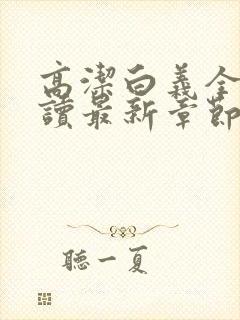 高潔白義全
讀最新章節
聽一夏